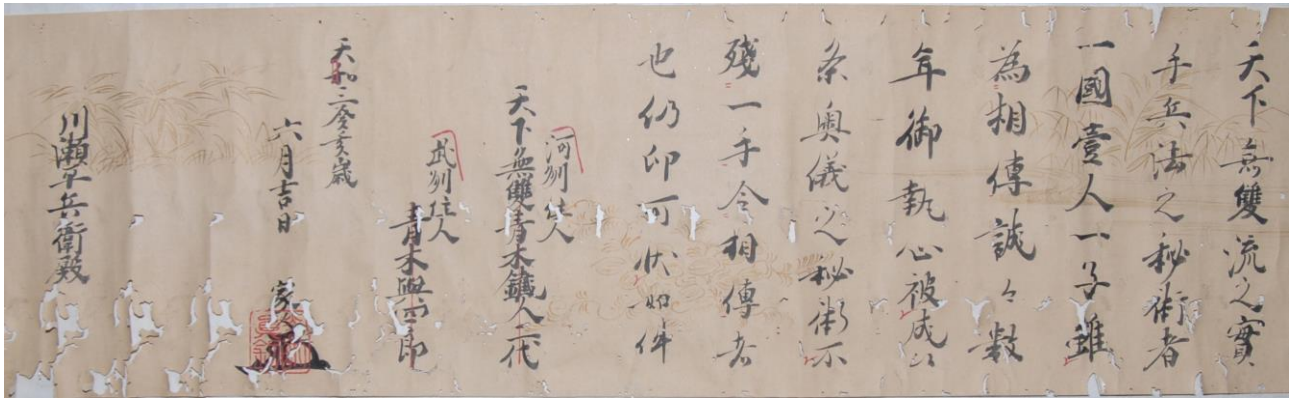 天下無雙流之實
手兵法之秘術者
一國壹人一子雖
為相傳誠々数
年御執心被成候
条奥儀之秘術不
残一手令相傳者
也仍印可状如件
河刕住人
天下無雙青木鐵人二代
武刕住人
青木與四郎
天和三癸亥歳
六月吉日 家
川瀬平兵衛殿